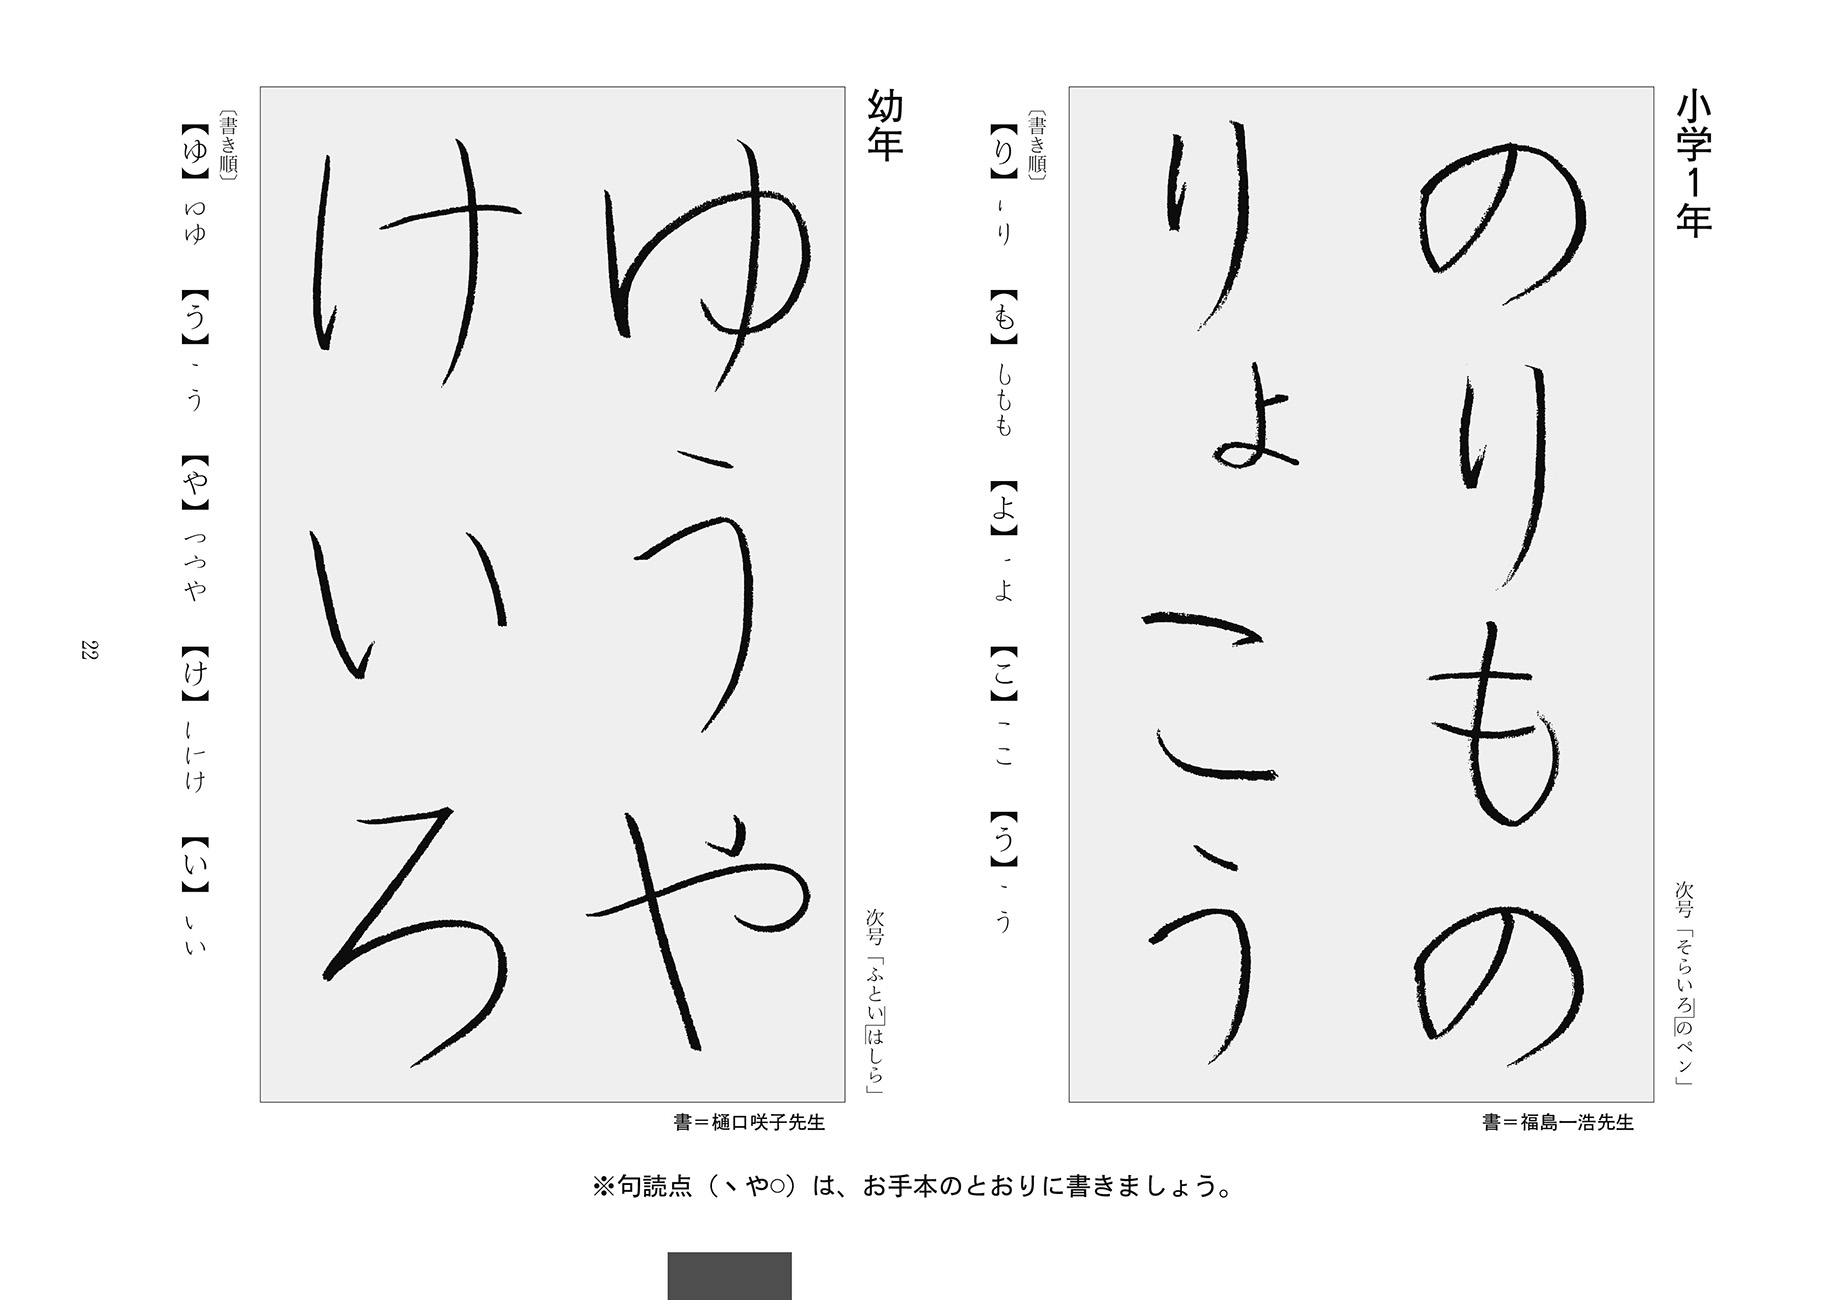 小学1年
次号「そらいろのペン」
のりもの
りょこう
書＝福島一浩先生
〔書き順〕
【り】 り 【も】 しもも 【よ】 よ 【こ】 こ 【う】 う
幼年
次号「ふといはしら」
ゆうや
けいろ
書＝樋口咲子先生
〔書き順〕
【ゆ】 ゆ 【う】 う 【や】 つや 【け】 け 【い】 い
※句読点（、や○）は、お手本のとおりに書きましょう。
22